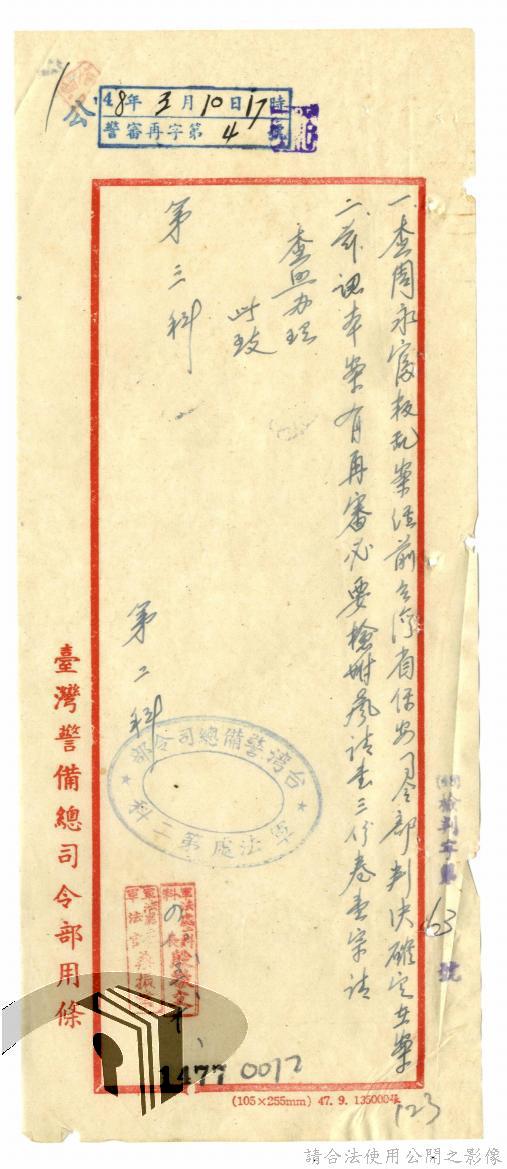 公
48年3月10日17時
警審再字第4號
一、查周永富叛乱案經前台湾省保安司令部判決確定在案
二、茲認本案有再審必要檢附聲請書三份卷壹宗請
查照办理
此致
第三科
第二科
台湾警備總司令部
軍法處第二科
(48)檢判字第63號
臺灣警備總司令部用條
1477 0072
(105×255mm) 47. 9. 135000張
123
請合法使用公開之影像